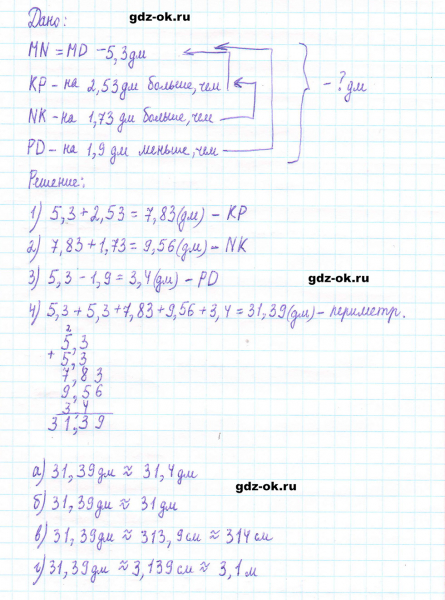 gdz-ok.ru
Дано:
MN = MD - 5,3 дм
KP - на 2,53 дм больше, чем
- ? дм
NK - на 1,73 дм больше, чем
PD - на 1,9 дм меньше, чем
Решение:
1) 5,3 + 2,53 = 7,83 (дм) - KP
2) 7,83 + 1,73 = 9,56 (дм) - NK
3) 5,3 - 1,9 = 3,4 (дм) - PD
gdz-ok.ru
4) 5,3 + 5,3 + 7,83 + 9,56 + 3,4 = 31,39 (дм) - периметр.
2
5,3
+ 5,3
7,83
9,56
3,4
31,39
а) 31,39 дм ≈ 31,4 дм
gdz-ok.ru
б) 31,39 дм ≈ 31 дм
в) 31,39 дм ≈ 313,9 см ≈ 314 см
г) 31,39 дм ≈ 3,139 см ≈ 3,1 м